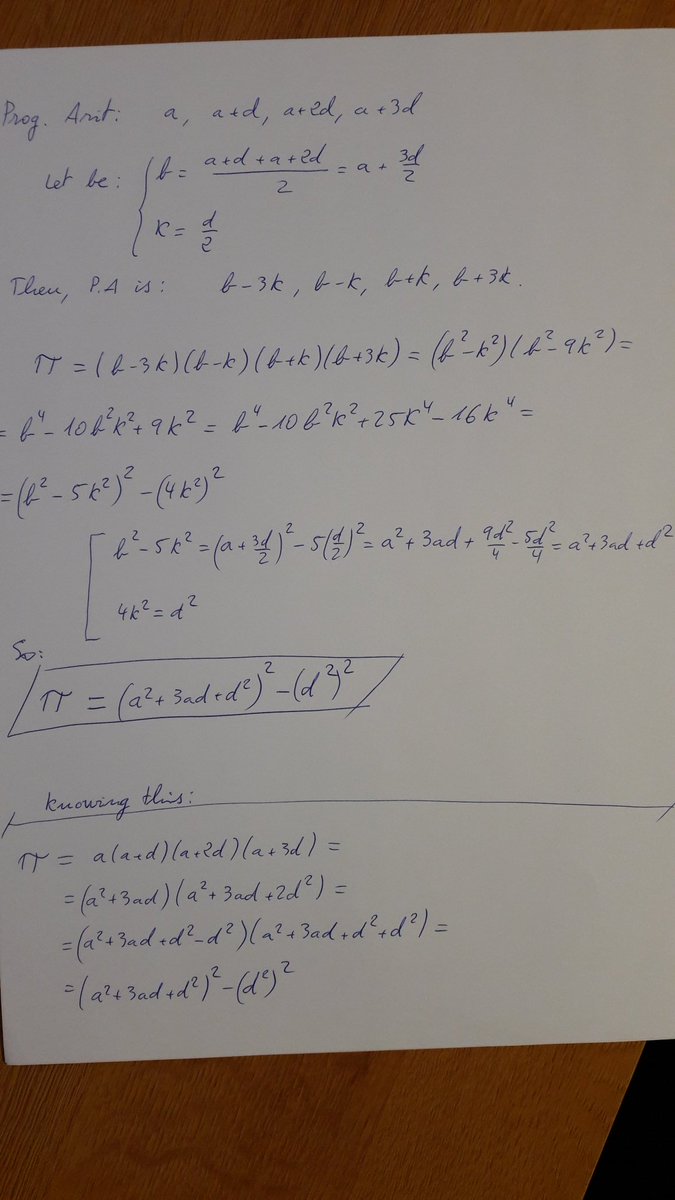 Prog. Arit: a, a+d, a+2d, a+3d
Let be: { b = (a+d+a+2d)/2 = a + 3d/2
k = d/2
Then, P.A is: b-3k, b-k, b+k, b+3k.
π = (b-3k)(b-k)(b+k)(b+3k) = (b²-k²)(b²-9k²) =
= b⁴-10b²k²+9k² = b⁴-10b²k²+25k⁴-16k⁴ =
= (b²-5k²)²-(4k²)²
[ b²-5k² = (a+3d/2)²-5(d/2)² = a²+3ad+9d²/4-5d²/4 = a²+3ad+d²
4k² = d²
So:
π = (a²+3ad+d²)²-(d²)²
knowing this:
π = a(a+d)(a+2d)(a+3d) =
= (a²+3ad)(a²+3ad+2d²) =
= (a²+3ad+d²-d²)(a²+3ad+d²+d²) =
= (a²+3ad+d²)²-(d²)²